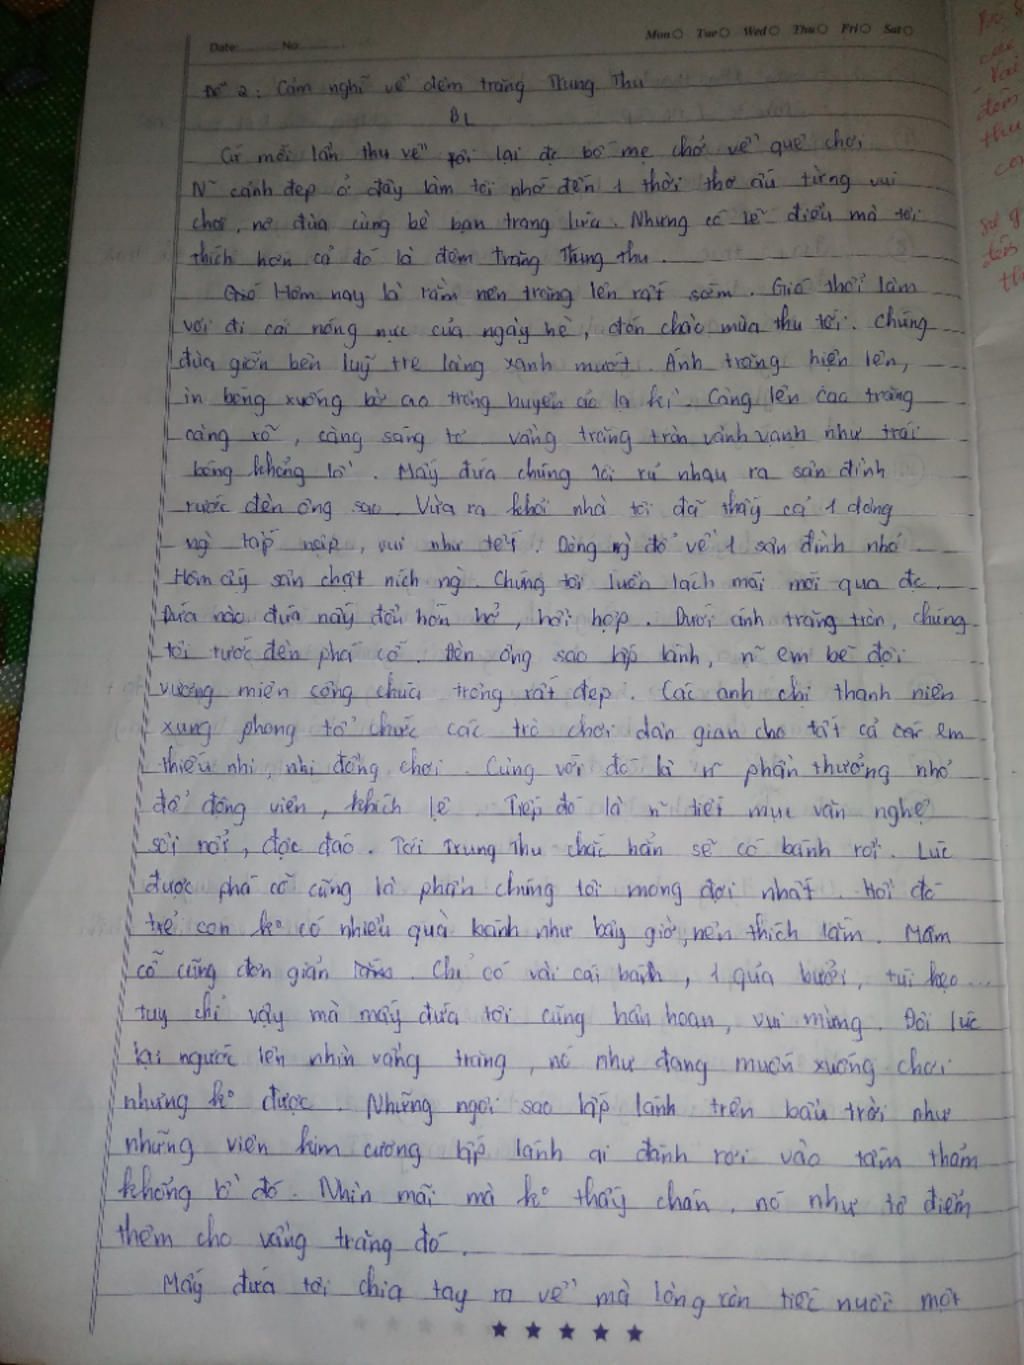 Date: No:
Mon Tue Wed Thu Fri Sat
Đề 2: Cảm nghĩ về đêm trăng Trung Thu
BL
Cứ mỗi lần thu về tôi lại đc bố mẹ chở về quê chơi
N~ cảnh đẹp ở đây làm tôi nhớ đến 1 thời thơ ấu từng vui
chơi, nô đùa cùng bè bạn trang lứa. Nhưng có lẽ điều mà tôi
thích hơn cả đó là đêm trăng Trung thu.
Hôm nay là rằm nên trăng lên rất sớm. Gió thổi làm
vơi đi cái nóng nực của ngày hè, đón chào mùa thu tới. Chúng
đùa giỡn bên luỹ tre làng xanh mướt. Ánh trăng hiện lên,
in bóng xuống bờ ao trông huyền ảo lạ kì. Càng lên cao trăng
càng rõ, càng sáng tỏ vầng trăng tròn vành vạnh như trái
bóng khổng lồ. Mấy đứa chúng tôi rủ nhau ra sân đình
rước đèn ông sao. Vừa ra khỏi nhà tôi đã thấy cả 1 dòng
ng` tấp nập, vui như tết. Dòng ng` đổ về 1 sân đình nhỏ
Hôm ấy sân chật ních ng`. Chúng tôi luồn lách mãi mới qua đc.
Đứa nào đứa nấy đều hớn hở, hồi hộp. Dưới ánh trăng tròn, chúng
tôi rước đèn phá cỗ. Đèn ông sao lấp lánh, n~ em bé đội
vương miện công chúa trông rất đẹp. Các anh chị thanh niên
xung phong tổ chức các trò chơi dân gian cho tất cả các em
thiếu nhi, nhi đồng chơi. Cùng với đó là n~ phần thưởng nhỏ
để động viên, khích lệ. Tiếp đó là n~ tiết mục văn nghệ
sôi nổi, độc đáo. Tới Trung Thu chắc hẳn sẽ có bánh rồi. Lúc
được phá cỗ cũng là phần chúng tôi mong đợi nhất. Hồi đó
trẻ con ko có nhiều quà bánh như bây giờ, nên thích lắm. Mâm
cỗ cũng đơn giản. Chỉ có vài cái bánh, 1 quả bưởi, túi kẹo...
tuy chỉ vậy mà mấy đứa tôi cũng hân hoan, vui mừng. Đôi lúc
lại ngước lên nhìn vầng trăng, nó như đang muốn xuống chơi
nhưng ko được. Những ngôi sao lấp lánh trên bầu trời như
những viên kim cương lấp lánh ai đánh rơi vào tấm thảm
khổng lồ đó. Nhìn mãi mà ko thấy chán, nó như tô điểm
thêm cho vầng trăng đó.
Mấy đứa tôi chia tay ra về mà lòng còn tiếc nuối một